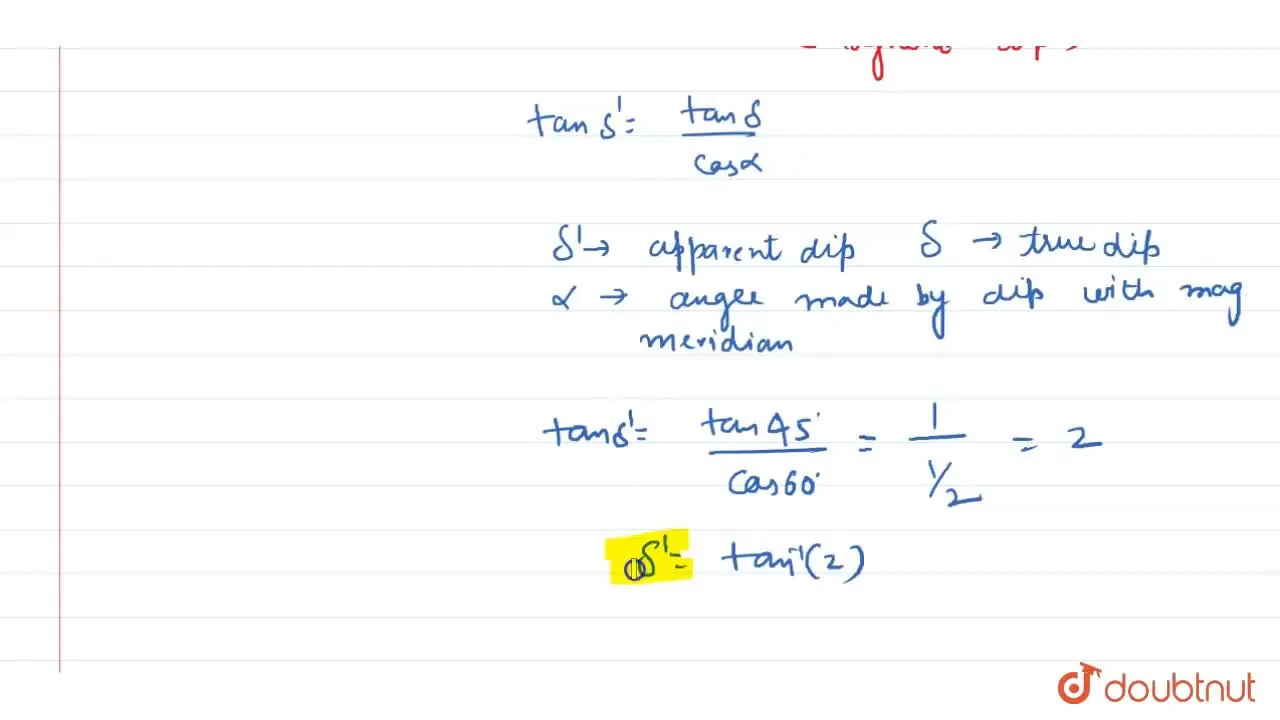 tan δ' = tan δ / cos α
δ' → apparent dip δ → true dip
α → angle made by dip with mag
meridian
tan δ' = tan 45° / cos 60° = 1 / 1/2 = 2
δ' = tan⁻¹(2)
doubtnut